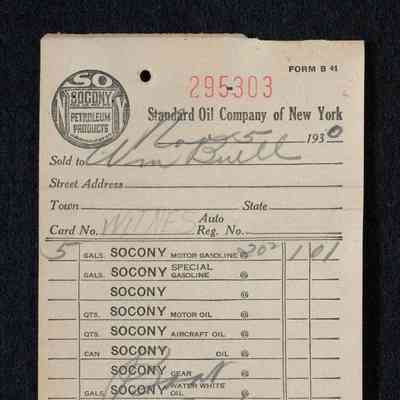 FORM B 41
SO
SOCONY
N Y
PETROLEUM
PRODUCTS
295303
Standard Oil Company of New York
Nov 5 1930
Sold to Wm Buell
Street Address
Town State
Card No. WITNES Auto Reg. No.
5 GALS. SOCONY MOTOR GASOLINE @ 202 1 01
GALS. SOCONY SPECIAL GASOLINE @
SOCONY @
QTS. SOCONY MOTOR OIL @
QTS. SOCONY AIRCRAFT OIL @
CAN SOCONY OIL @
SOCONY GEAR @
GALS. SOCONY WATER WHITE OIL @